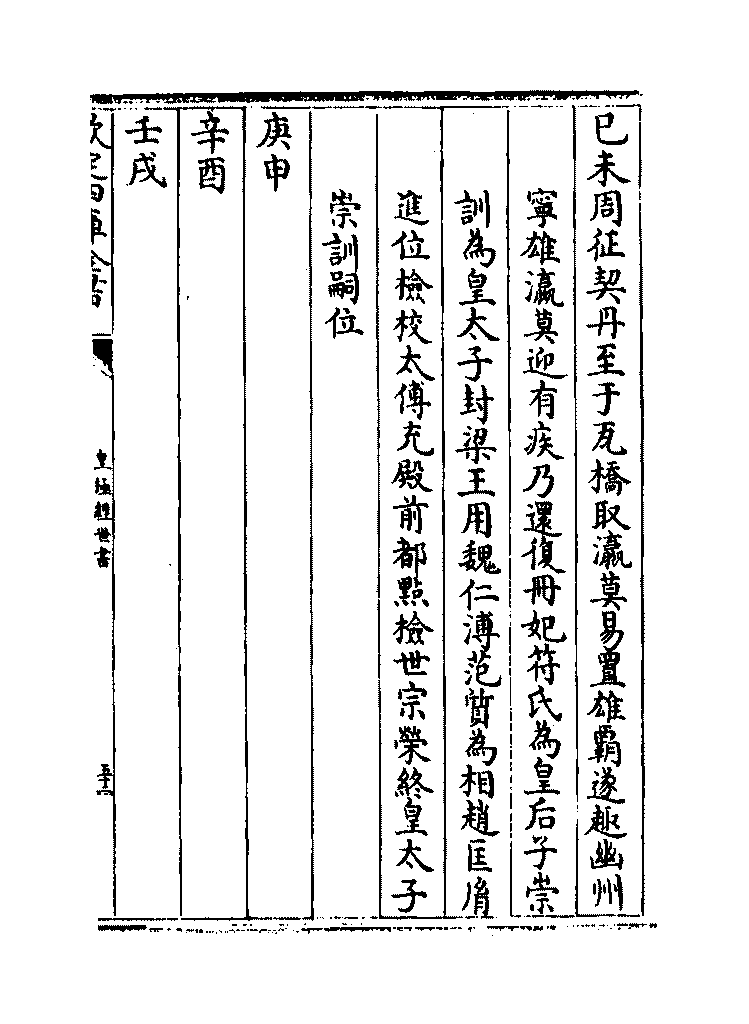 已未周征契丹至于瓦橋取瀛莫易置雄霸遂趣幽州
寧雄瀛莫迎有疾乃還復冊妃符氏為皇后子崇
訓為皇太子封梁王用魏仁溥范質為相趙匡胤
進位檢校太傅充殿前都點檢世宗榮終皇太子
崇訓嗣位
庚申
辛酉
壬戌
欽定四庫全書
皇極經世書